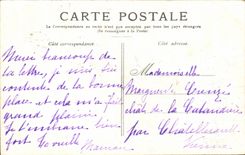 CARTE POSTALE
La Correspondance au recto n'est pas acceptée par tous les pays étrangers
(Se renseigner à la Poste)
Côté correspondance
Côté adresse
Merci beaucoup de
ta lettre, je suis
contente de la bonne
place et cela m'a fait
grand plaisir
Je t'embrasse bien
fort
Maman
Mademoiselle
Marguerite
de la
par Chatellerault
Vienne